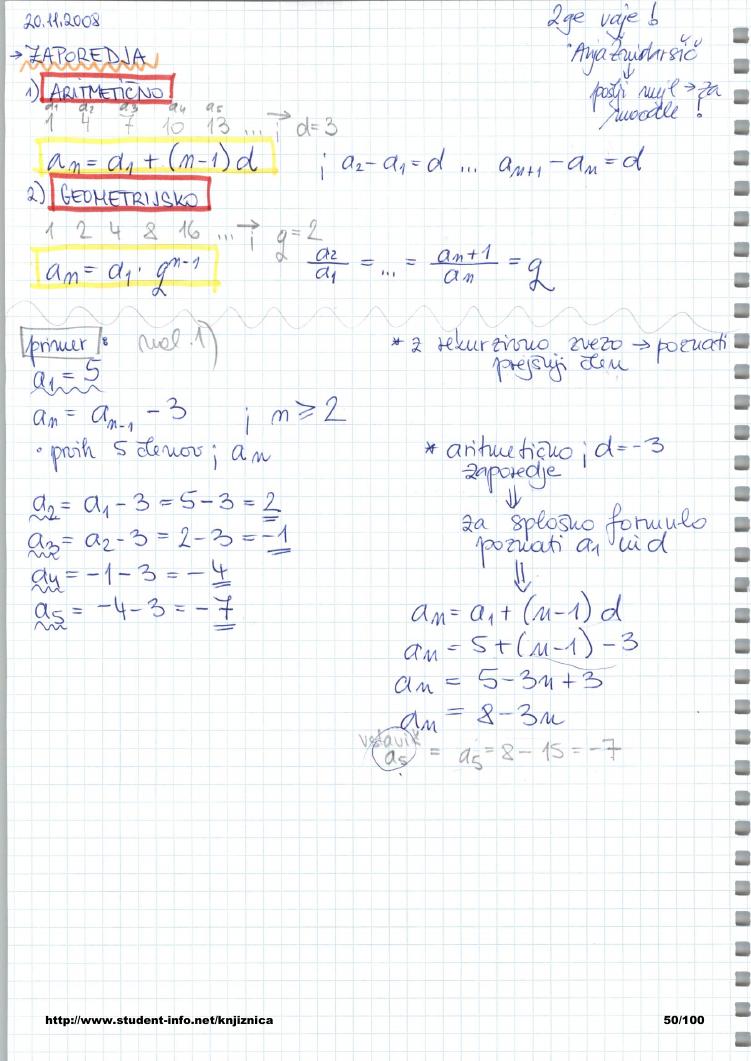 20.11.2008
2ge vaje!
→ ZAPOREDJA
1) ARITMETIČNO
pošlji majl → za
moodle!
a1 a2 a3 a4 a5
1 4 7 10 13 ... ; → d=3
an = a1 + (n-1) d ; a2 - a1 = d ... an+1 - an = d
2) GEOMETRIJSKO
1 2 4 8 16 ... ; → q = 2
an = a1 · q^n-1
a2/a1 = ... = an+1/an = q
primer: nal. 1)
a1 = 5
an = an-1 - 3 ; n ≥ 2
· prvih 5 členov ; an
a2 = a1 - 3 = 5 - 3 = 2
a3 = a2 - 3 = 2 - 3 = -1
a4 = -1 - 3 = -4
a5 = -4 - 3 = -7
* z rekurzivno zvezo → poznati
prejšnji člen
* aritmetično ; d = -3
zaporedje
⇓
za splošno formulo
poznati a1 in d
⇓
an = a1 + (n-1) d
an = 5 + (n-1) - 3
an = 5 - 3n + 3
an = 8 - 3n
vstaviš
a5 = a5 = 8 - 15 = -7
http://www.student-info.net/knjiznica
50/100